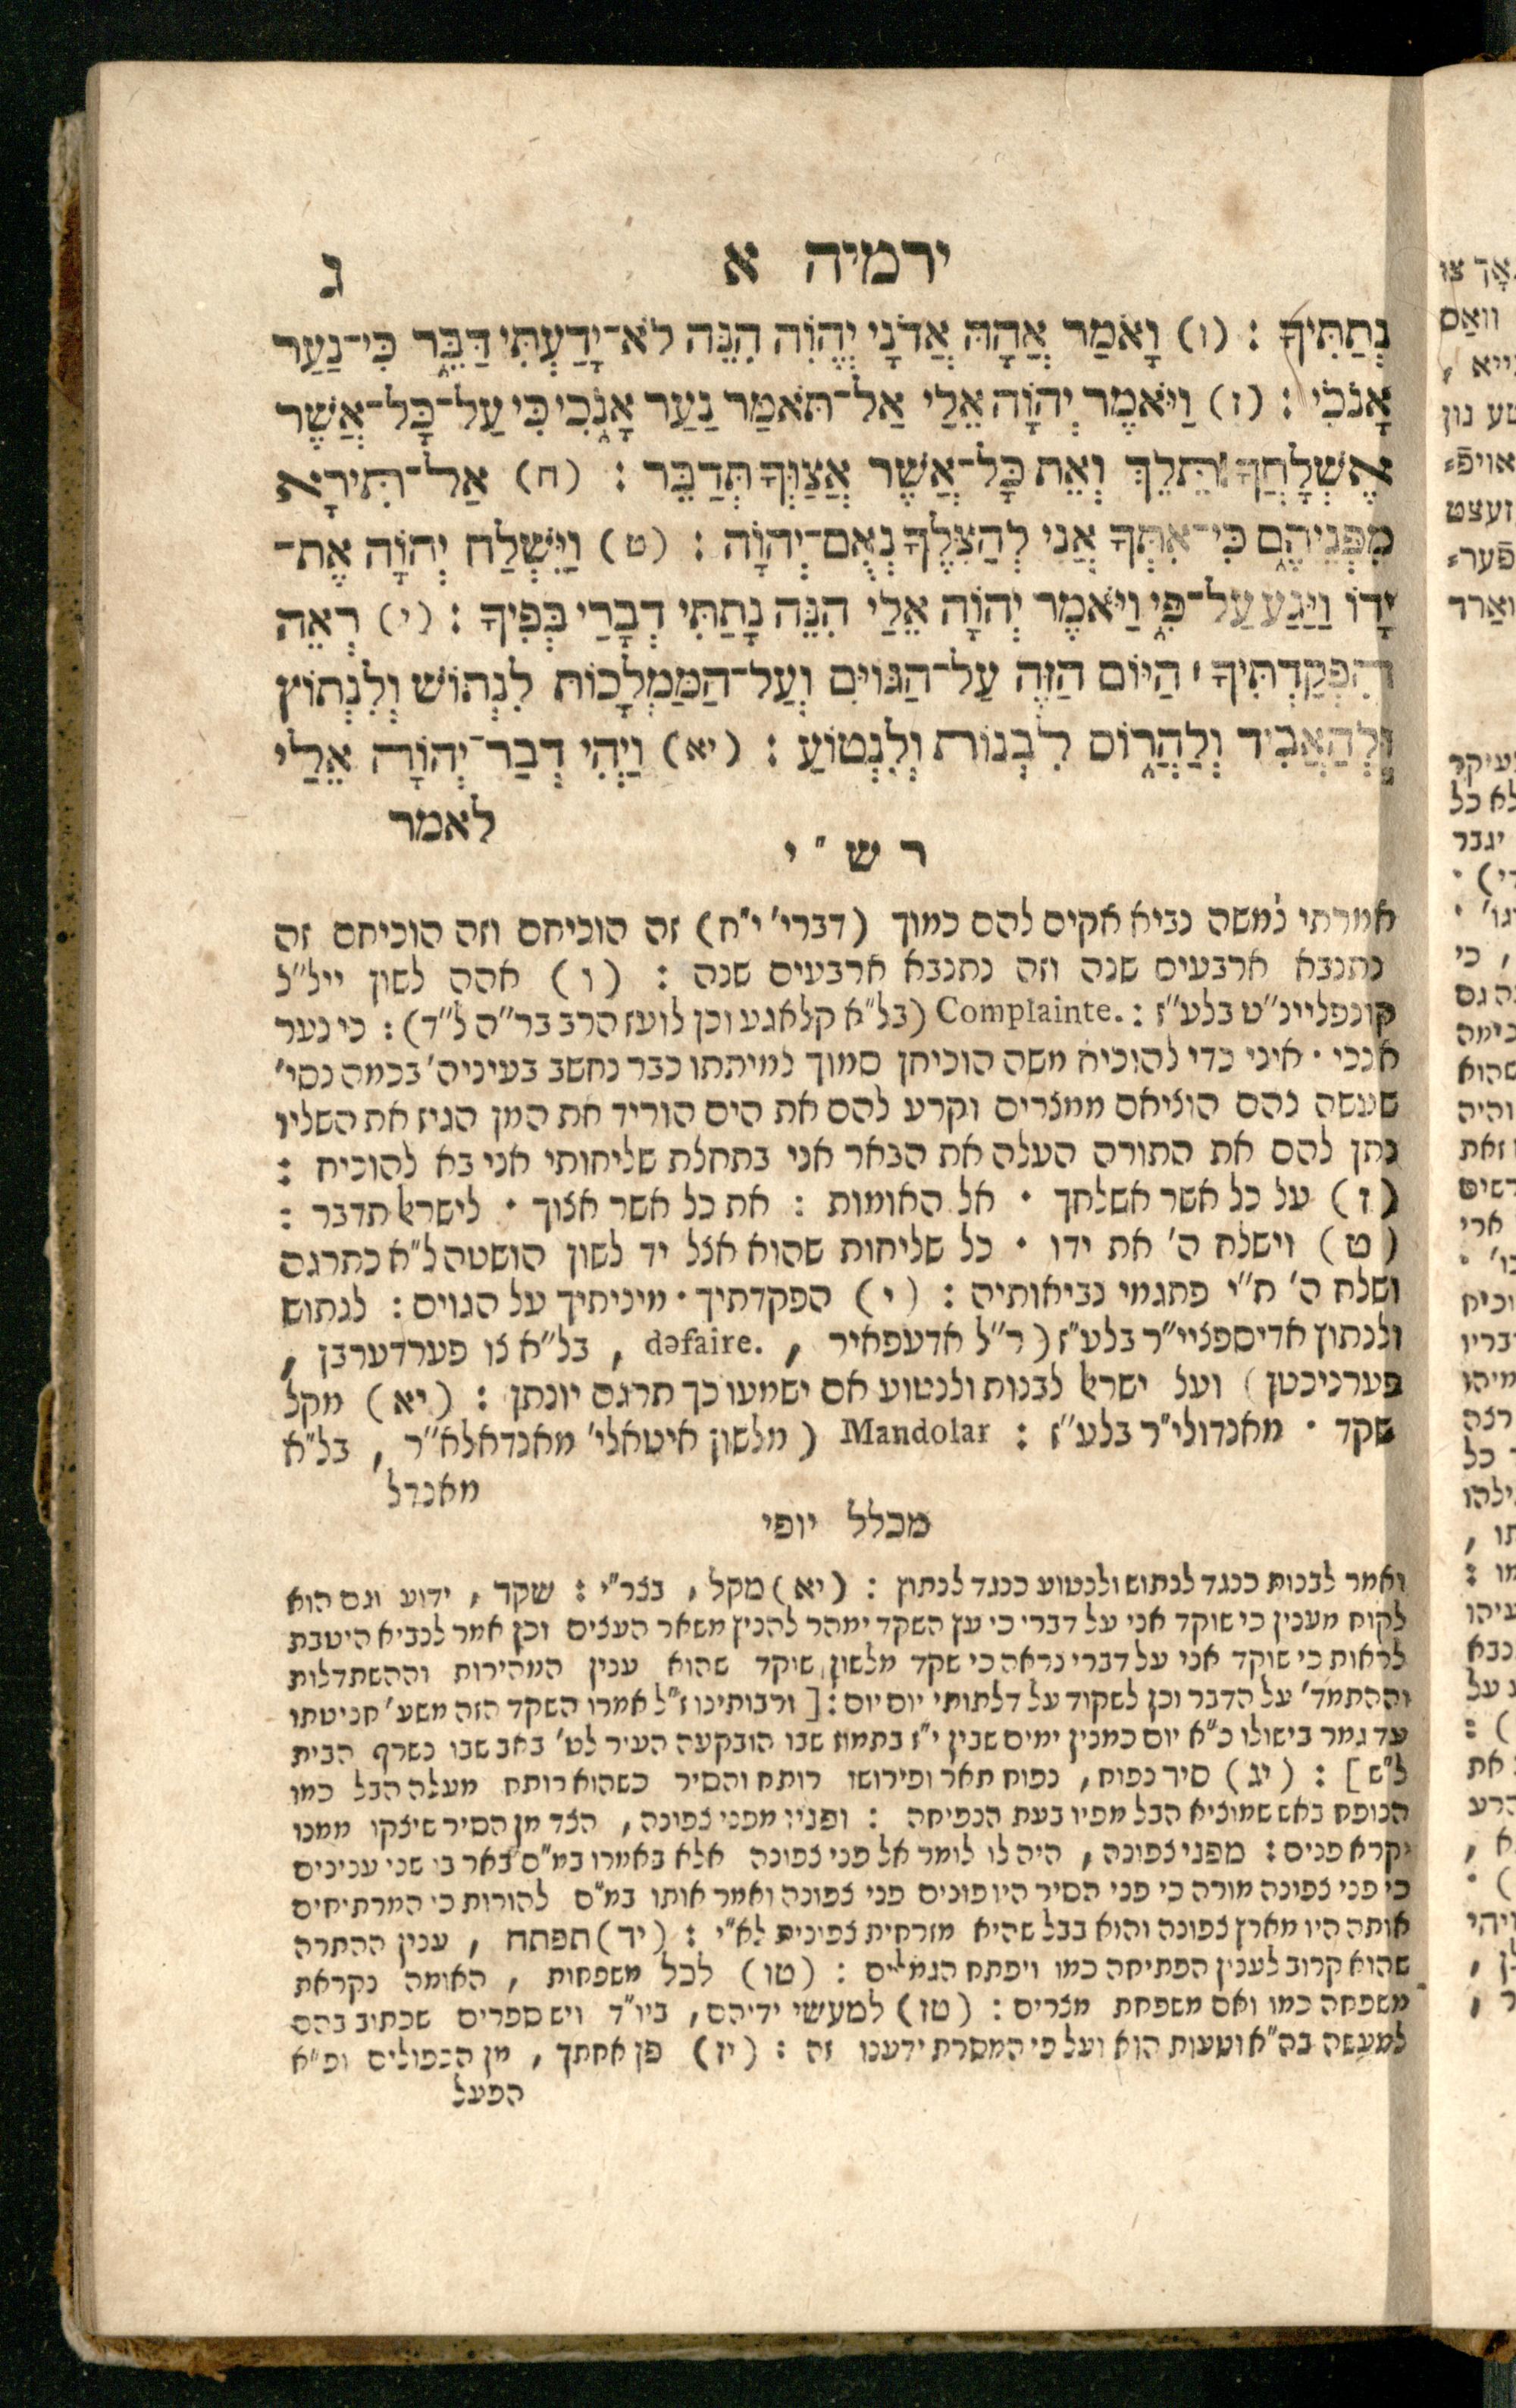 ירמיה א ג
נְתַתִּיךָ : (ו) וָאֹמַר אֲהָהּ אֲדֹנָי יְהֹוִה הִנֵּה לֹא־יָדַעְתִּי דַּבֵּר כִּי־נַעַר
אָנֹכִי : (ז) וַיֹּאמֶר יְהֹוָה אֵלַי אַל־תֹּאמַר נַעַר אָנֹכִי כִּי עַל־כָּל־אֲשֶׁר
אֶשְׁלָחֲךָ תֵּלֵךְ וְאֵת כָּל־אֲשֶׁר אֲצַוְּךָ תְּדַבֵּר : (ח) אַל־תִּירָא
מִפְּנֵיהֶם כִּי־אִתְּךָ אֲנִי לְהַצִּלֶךָ נְאֻם־יְהֹוָה : (ט) וַיִּשְׁלַח יְהֹוָה אֶת־
יָדוֹ וַיַּגַּע עַל־פִּי וַיֹּאמֶר יְהֹוָה אֵלַי הִנֵּה נָתַתִּי דְבָרַי בְּפִיךָ : (י) רְאֵה
הִפְקַדְתִּיךָ ׀ הַיּוֹם הַזֶּה עַל־הַגּוֹיִם וְעַל־הַמַּמְלָכוֹת לִנְתוֹשׁ וְלִנְתוֹץ
וּלְהַאֲבִיד וְלַהֲרוֹס לִבְנוֹת וְלִנְטוֹעַ : (יא) וַיְהִי דְבַר־יְהֹוָה אֵלַי
לאמר
ר ש " י
אמרתי למשה נביא אקים להם כמוך (דברי' י"ח) זה הוכיחם וזה הוכיחם זה
נתנבא ארבעים שנה וזה נתנבא ארבעים שנה : (ו) אהה לשון ייל"ל
קונפליינ"ט בלע"ז : Complainte. (בל"א קלאגע וכן לועז הרב בר"ה ל"ד) : כי נער
אנכי · איני כדי להוכיח משה הוכיחן סמוך למיתתו כבר נחשב בעיניה' בכמה נסי'
שעשה להם הוציאם ממצרים וקרע להם את הים הוריד את המן הגיז את השליו
נתן להם את התורה העלה את הבאר אני בתחלת שליחותי אני בא להוכיח :
(ז) על כל אשר אשלחך · אל האומות : את כל אשר אצוך · לישראל תדבר :
(ט) וישלח ה' את ידו · כל שליחות שהוא אצל יד לשון הושטה ל"א כתרגם
ושלח ה' ת"י פתגמי נביאותיה : (י) הפקדתיך · מיניתיך על הגוים : לנתוש
ולנתוץ אדיספציי"ר בלע"ז (ר"ל אדעפאיר , dəfaire. , בל"א צו פערדערבן ,
פערניכטן) ועל ישראל לבנות ולנטוע אם ישמעו כך תרגם יונתן : (יא) מקל
שקד · מאנדולי"ר בלע"ז : Mandolar (מלשון איטאלי' מאנדאלא"ר , בל"א
מאנדל
מכלל יופי
ואמר לבנות כנגד לנתוש ולנטוע כנגד לנתוץ : (יא) מקל , בצר"י : שקד , ידוע וגם הוא
לקוח מענין כי שוקד אני על דברי כי עץ השקד ימהר להנץ משאר העצים וכן אמר לנביא היטבת
לראות כי שוקד אני על דברי נראה כי שקד מלשון שוקד שהוא ענין המהירות וההשתדלות
וההתמד' על הדבר וכן לשקוד על דלתותי יום יום : [ורבותינו ז"ל אמרו השקד הזה משע' חניטתו
עד גמר בישולו כ"א יום כמנין ימים שבין י"ז בתמוז שבו הובקעה העיר לט' באב שבו נשרף הבית
ל"ש] : (יג) סיר נפוח , נפוח תאר ופירושו רותח והסיר כשהוא רותח מעלה הבל כמו
הנופח באש שמוציא הבל מפיו בעת הנפיחה : ופניו מפני צפונה , הצד מן הסיר שיצקו ממנו
יקרא פנים : מפני צפונה , היה לו לומר אל פני צפונה אלא באמרו במ"ם באר בו שני ענינים
כי פני צפונה מורה כי פני הסיר היו פונים פני צפונה ואמר אותו במ"ם להורות כי המרתיחים
אותה היו מארץ צפונה והוא בבל שהיא מזרחית צפינית לא"י : (יד) תפתח , ענין ההתרה
שהוא קרוב לענין הפתיחה כמו ויפתח הגמלים : (טו) לכל משפחות , האומה נקראת
משפחה כמו ואם משפחת מצרים : (טז) למעשי ידיהם , ביו"ד ויש ספרים שכתוב בהם
למעשה בה"א וטעות הוא ועל פי המסרת ידענו זה : (יז) פן אחתך , מן הכפולים ופ"א
הפעל